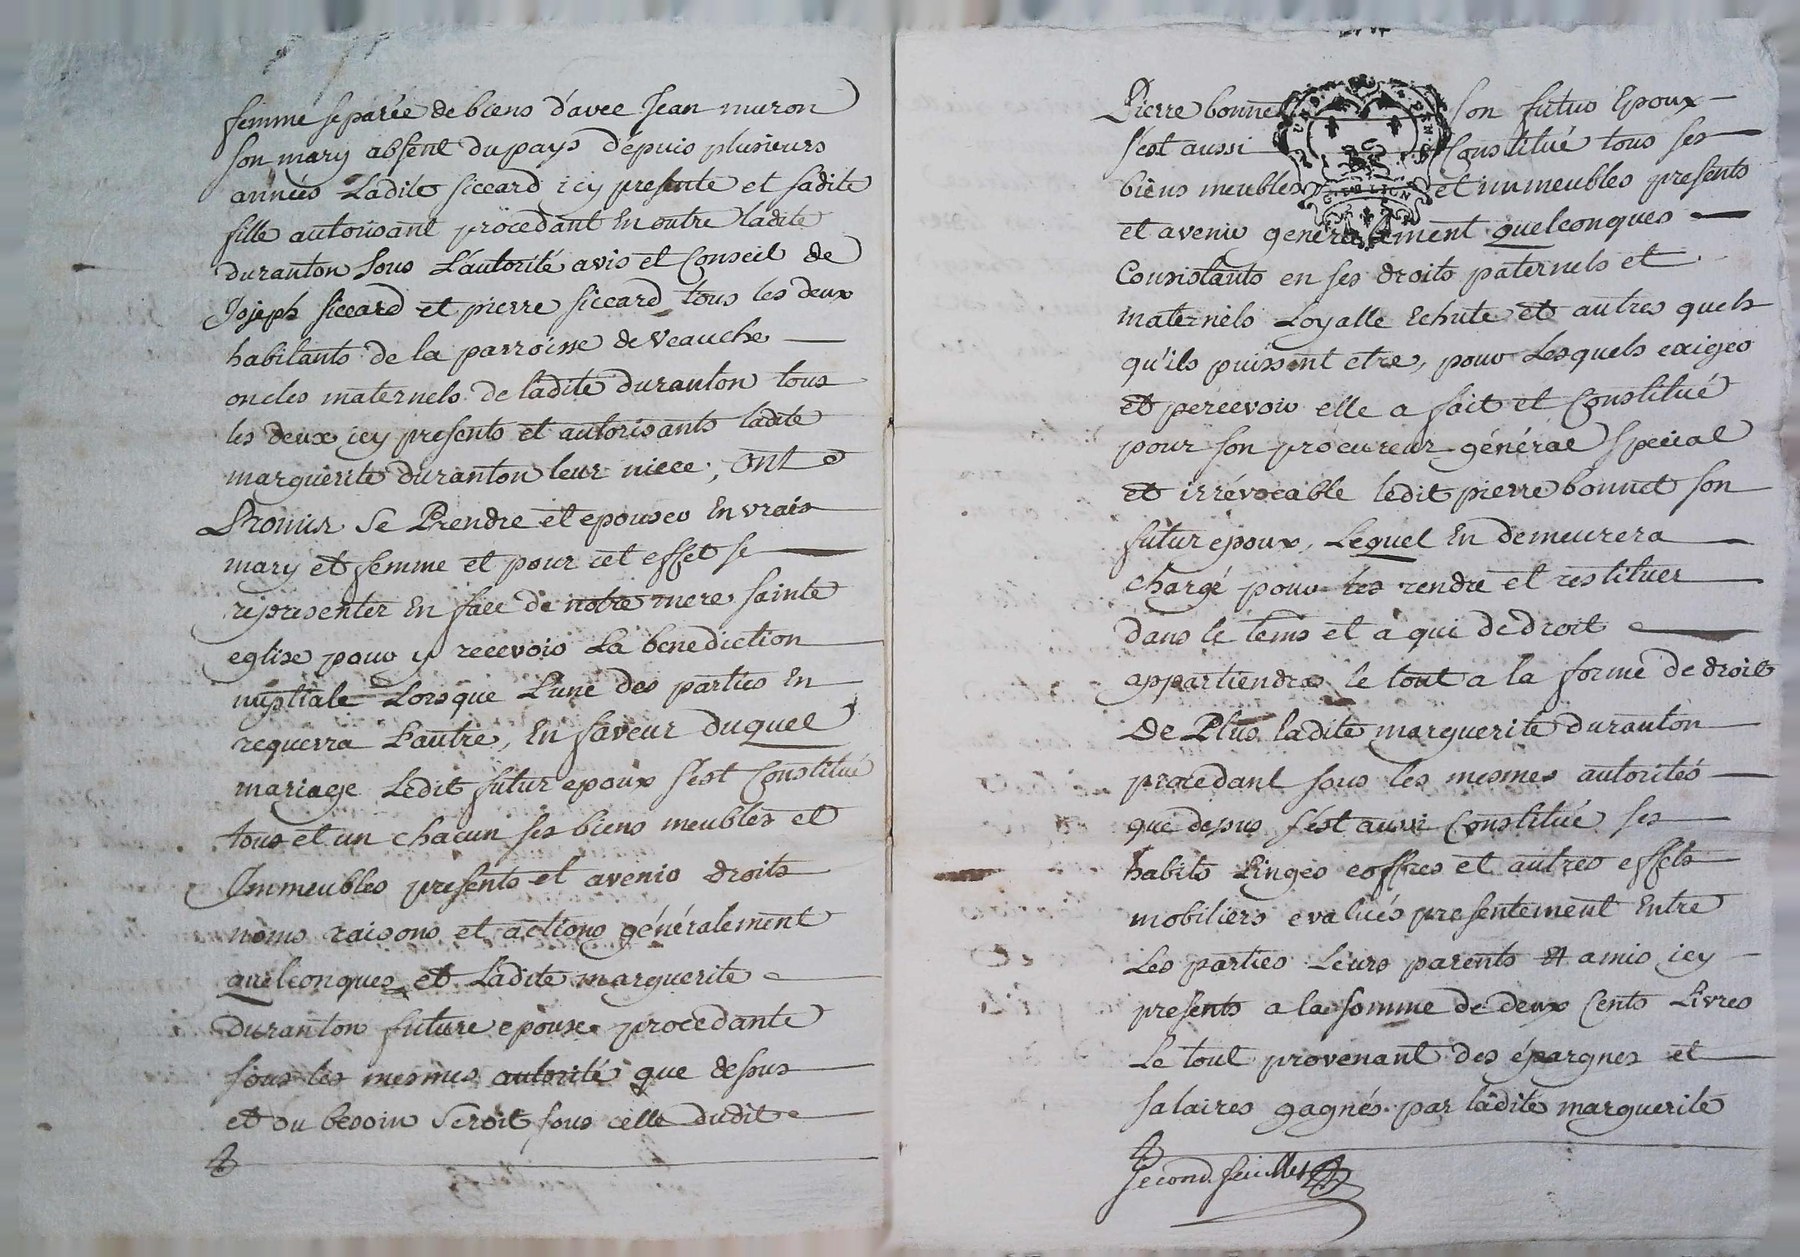 femme separée de biens d'avec Jean muron
son mary absent du pays d'epuis plusieurs
années Ladite siccard icy presente et sadite
fille autorisant procedant En outre ladite
duranton sous L'autorité avis et Conseil de
Joseph siccard et pierre siccard tous les deux
habitants de la parroisse de Veauche
oncles maternels de ladite duranton tous
les deux icy presents et autorisants ladite
marguerite duranton leur niece, ont
Promis se Prendre et epouser En vrais
mary et femme et pour cet effet se
representer En face de notre mere sainte
eglise pour y recevoir La benediction
nuptiale Lorsque L'une des parties En
requerra L'autre, En faveur duquel
mariage Ledit futur epoux s'est Constitué
tous et un chacun ses biens meubles et
Immeubles presents et avenir droits
noms raisons et actions généralement
quelconques et Ladite marguerite
duranton future epouse procedante
sous les mesmes autorité que desus
et ou besoin seroit sous celle dudit
Pierre bonnet son futur Epoux
s'est aussi Constitué tous ses
biens meubles et immeubles presents
et avenir generalement quelconques
Consistants en ses droits paternels et
maternels Loyalle Echute et autres quels
qu'ils puissent etre, pour Lesquels exiger
et percevoir elle a fait et Constitué
pour son procureur général special
et irrévocable ledit pierre bonnet son
futur epoux, Lequel En demeurera
chargé pour les rendre et restituer
dans le tems et a qui de droit
appartiendra le tout a la forme de droit
De Plus ladite marguerite duranton
procedant sous les mesmes autorités
que desus s'est aussi Constitué ses
habits Linges coffres et autres effets
mobiliers evalués presentement Entre
Les parties Leurs parents et amis icy
presents a la somme de deux Cents Livres
Le tout provenant des épargnes et
salaires gagnés par ladite marguerite
second feuillet